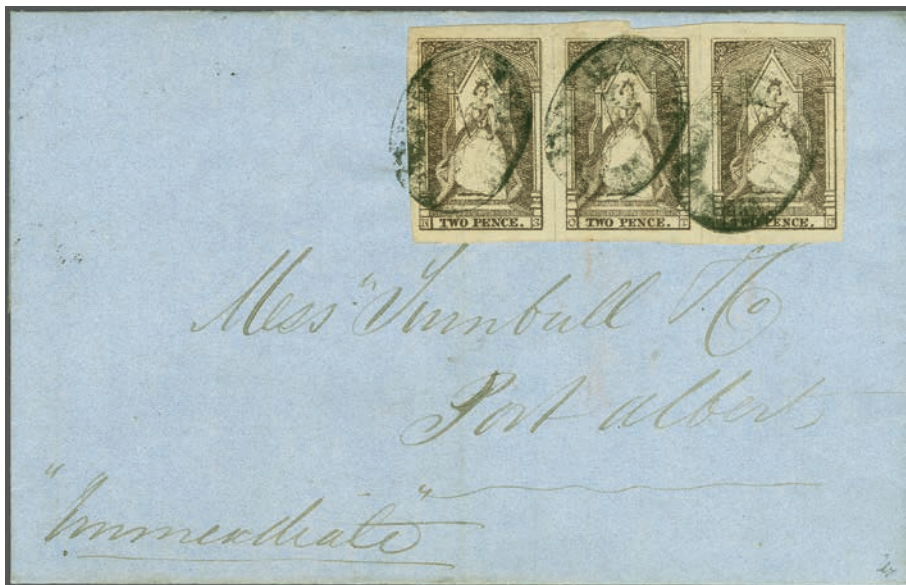 TWO PENCE. TWO PENCE. TWO PENCE.
Mess" Turnbull & Co
Port Albert
"Immediate"